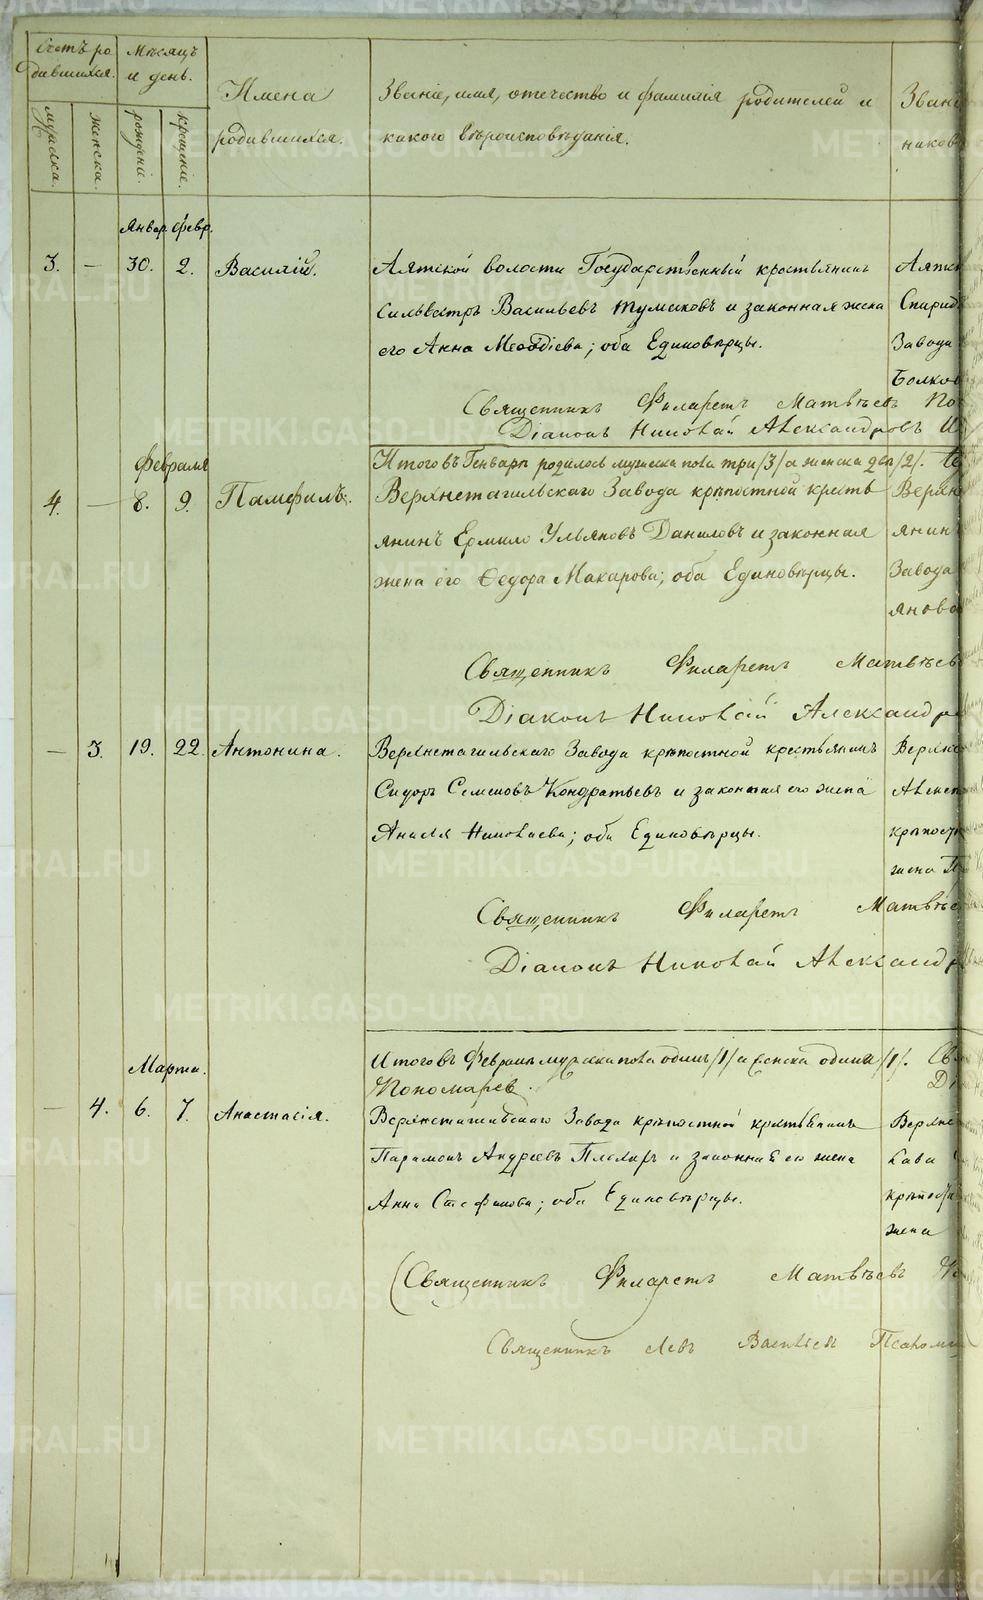 Счетъ ро
дившихся.
Мѣсяцъ
и день.
Имена
родившихся.
Званіе, имя, отечество и фамилія родителей и
какого вѣроисповѣданія.
мужеска.
женска.
рожденія.
крещенія.
Январ. февр.
3. — 30. 2. Василій.
Аятской волости Государственный крестьянинъ
Сильвестръ Васильевъ и законная жена
его Анна; оба Единовѣрцы.
Священникъ Филаретъ Матвѣевъ
Діаконъ Николай Александровъ
Итого въ Генварѣ родилось мужеска пола три /3/ а женска два /2/.
Февраля
4. — 8. 9. Памфилъ.
Верхнетагильскаго Завода крѣпостной кресть
янинъ Ермило Ульяновъ Даниловъ и законная
жена его Ѳедора Макарова; оба Единовѣрцы.
Завода
Священникъ Филаретъ Матвѣевъ
Діаконъ Николай Александр
— 3. 19. 22. Антонина.
Верхнетагильскаго Завода крѣпостной крестьянинъ
Сидоръ Семеновъ Кондратьевъ и законная его жена
Николаева; оба Единовѣрцы.
Священникъ Филаретъ Матвѣе
Діаконъ Николай Александр
Итого въ Февралѣ мужеска пола одинъ /1/ а женска одна /1/.
Пономарев
Марта.
— 4. 6. 7. Анастасія.
Верхнетагильскаго Завода крѣпостной крестьянинъ
Парамонъ Андреевъ и законная его жена
Анна Стефанова; оба Единовѣрцы.
жена
Священникъ Филаретъ Матвѣевъ
Священникъ Левъ Васильевъ
METRIKI.GASO-URAL.RU